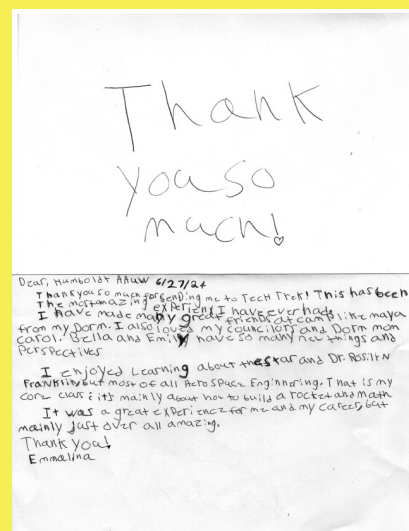 Thank
you so
much!
Dear, Humboldt AAUW 6/27/24
Thank you so much for sending me to Tech Trek! This has been
The most amazing experience I have ever had.
I have made many great friends at camp like maya
from my Dorm. I also loved my councilors and Dorm mom
carol. Bella and Emily have so many new things and
Perspectives
I enjoyed Learning about the and Dr. Rosilin
Franklin, but most of all AeroSpace Enginnering. That is my
core class & it's mainly about how to build a rocket and math
It was a great experience for me and my career, but
mainly Just over all amazing.
Thank you!
Emmalina